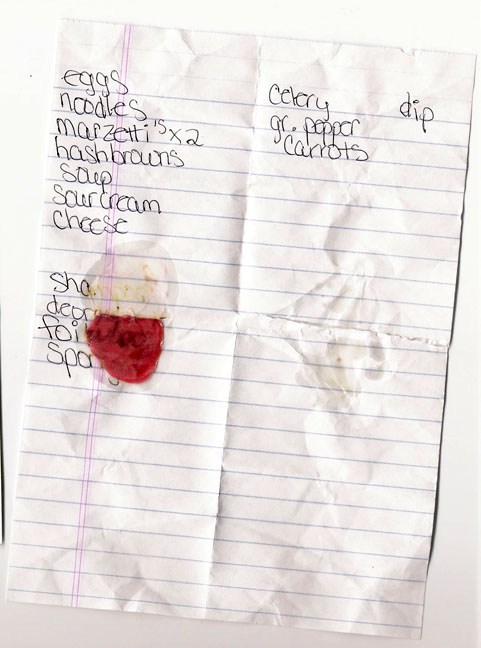 eggs
noodles
marzetti's x2
hashbrowns
soup
sour cream
cheese
foil
celery
gr. pepper
carrots
dip